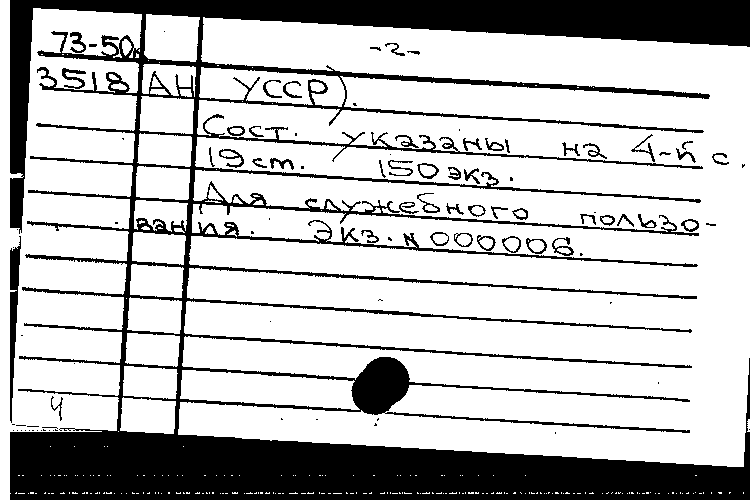 73-50к -2-
3518 АН УССР).
Сост. указаны на 4-й с.
19 ст. 150 экз.
Для служебного пользо-
вания. Экз. N 000006.
ч